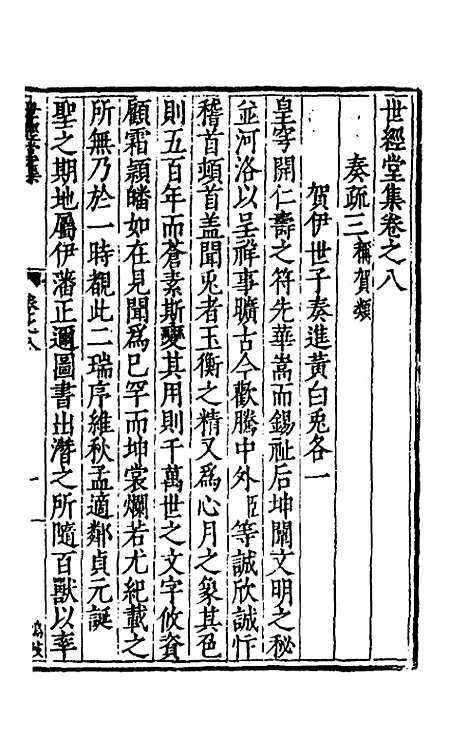 世經堂集卷之八
奏疏三稱賀類
賀伊世子奏進黃白兎各一
皇穹開仁壽之符先華嵩而錫祉后坤闡文明之秘
並河洛以呈祥事曠古今歡騰中外臣等誠欣誠忭
稽首頓首盖聞兎者玉衡之精又爲心月之象其色
則五百年而蒼素斯變其用則千萬世之文字攸資
顧霜穎皤如在見聞爲已罕而坤裳爛若尤紀載之
所無乃於一時覩此二瑞序維秋孟適鄰貞元誕
聖之期地屬伊藩正邇圖書出潛之所隨百獸以率
世經堂集
卷之八
一